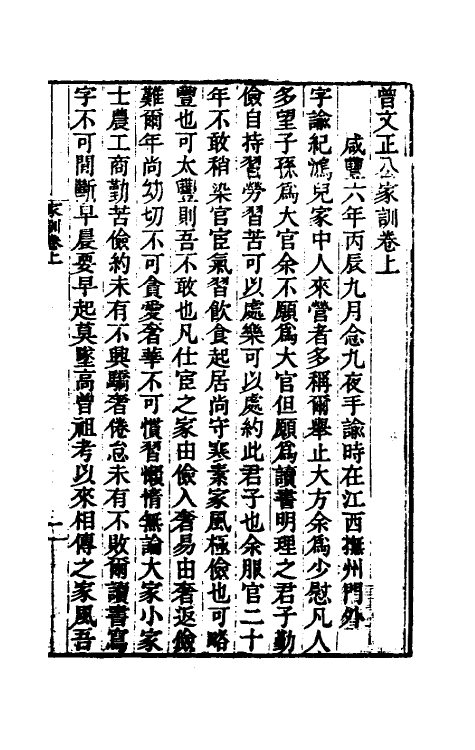 曾文正公家訓卷上
咸豐六年丙辰九月念九夜手諭時在江西撫州門外
字諭紀鴻兒家中人來營者多稱爾舉止大方余爲少慰凡人
多望子孫爲大官余不願爲大官但願爲讀書明理之君子勤
儉自持習勞習苦可以處樂可以處約此君子也余服官二十
年不敢稍染官宦氣習飲食起居尚守寒素家風極儉也可略
豐也可太豐則吾不敢也凡仕宦之家由儉入奢易由奢返儉
難爾年尚幼切不可貪愛奢華不可慣習懶惰無論大家小家
士農工商勤苦儉約未有不興驕奢倦怠未有不敗爾讀書寫
字不可間斷早晨要早起莫墜高曾祖考以來相傳之家風吾
家訓卷上
一